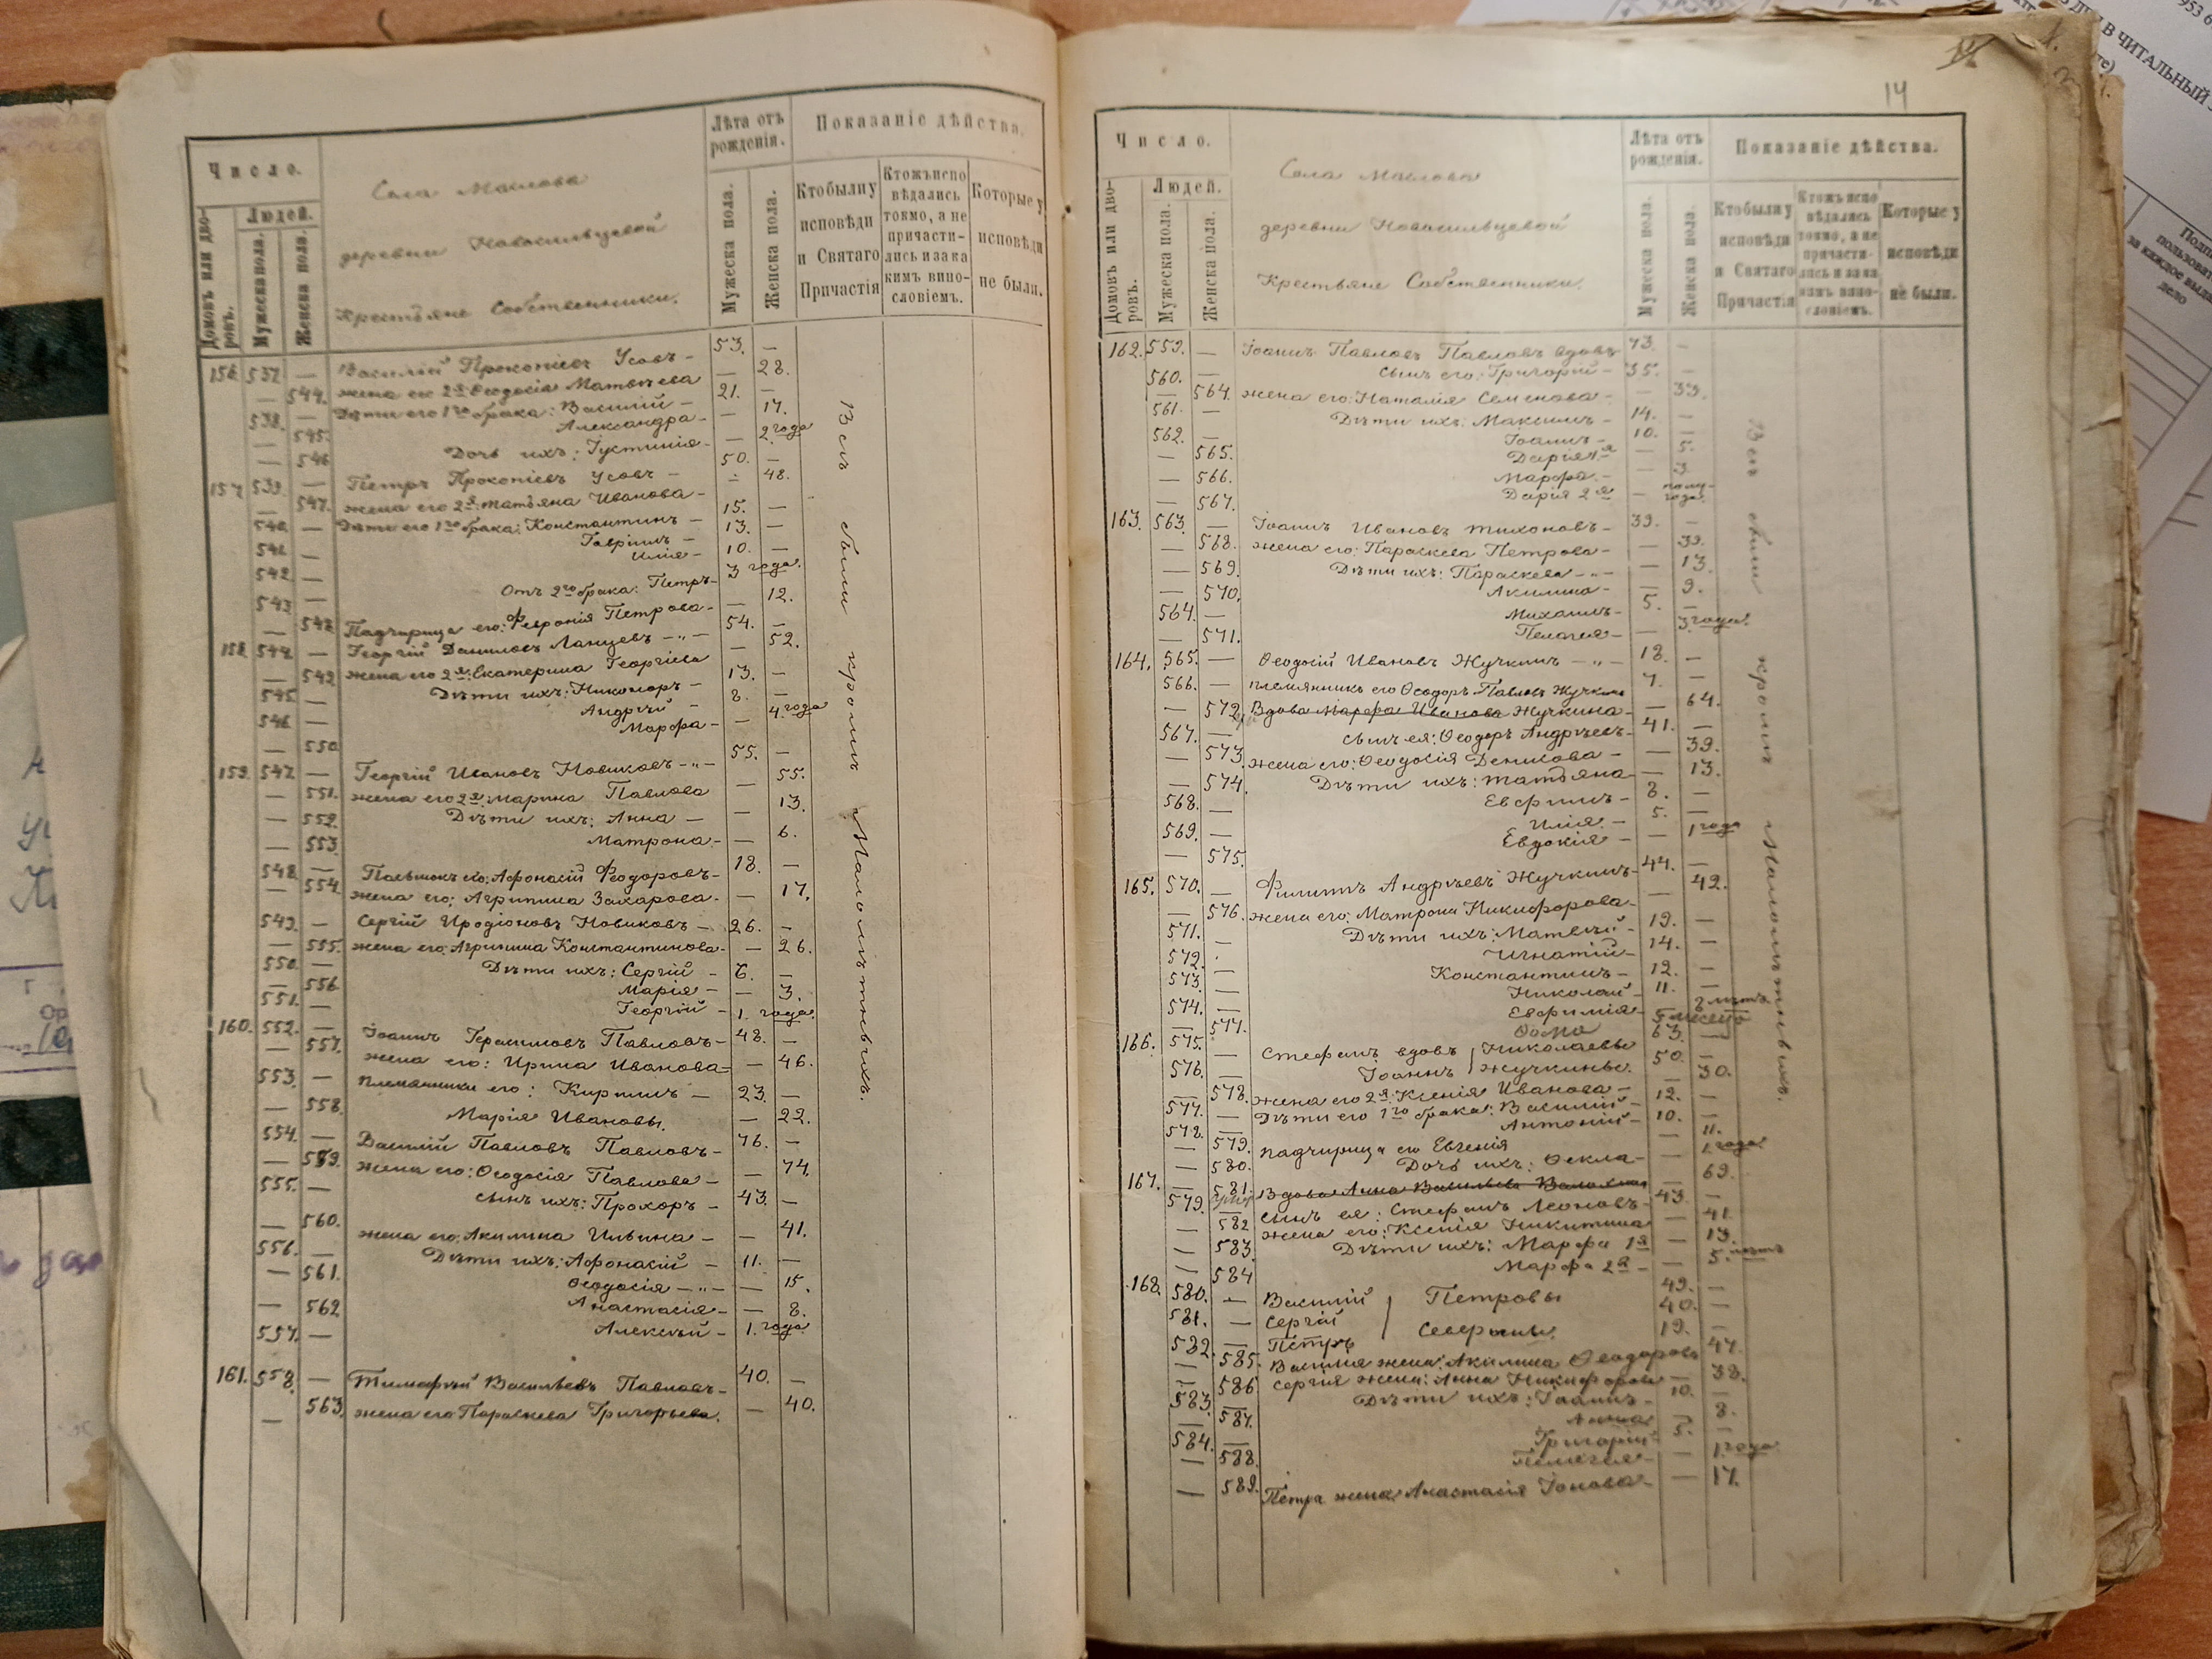 Число.
Лѣта отъ рожденія.
Показаніе дѣйства.
Домовъ или дворовъ.
Людей.
Мужеска пола.
Женска пола.
Села Маслова
деревни Новосильцевой
Крестьяне Собственники.
Мужеска пола.
Женска пола.
Кто были у исповѣди и Святаго Причастія
Кто жъ исповѣдались токмо, а не причастились и за какимъ винословіемъ.
Которые у исповѣди не были.
156. 537. — Василий Прокопіевъ Усовъ — 53. —
— 544. жена его 2я: Ѳеодосія Матвѣева — 28.
538. — Дѣти его 1го брака: Василій — 21. —
— 545. Александра — — 17.
— 546 Дочь ихъ: Іустинія — — 2 года
157. 539. — Петръ Прокопіевъ Усовъ — 50. —
— 547. жена его 2я: Татьяна Иванова — — 48.
540. — Дѣти его 1го брака: Константинъ — 15. —
541. — Гавріилъ — 13. —
542. — Илія — 10. —
543. — Отъ 2го брака: Петръ — 3 года.
— 548. Падчерица его: Февронія Петрова — — 12.
158. 544. — Георгій Даниловъ Ланцевъ — 54. —
— 549. жена его 2я: Екатерина Георгіева — 52.
545. — Дѣти ихъ: Никоноръ — 13. —
546. — Андрей — 8. —
— 550 Марфа — — 4. года
159. 547. — Георгій Ивановъ Новиковъ — 55. —
— 551. жена его 2я: Марина Павлова — 55.
— 552. Дѣти ихъ: Анна — — 13.
— 553. Матрона — — 6.
548. — Пасынокъ его: Афонасій Феодоровъ — 18. —
— 554. жена его: Агрипина Захарова — — 17.
549. — Сергій Иродіоновъ Новиковъ — 26. —
— 555. жена его: Агрипина Константинова — — 26.
550. — Дѣти ихъ: Сергій — 6. —
— 556. Марія — — 3.
551. — Георгій — 1. года.
160. 552. — Іоаннъ Герасимовъ Павловъ — 48. —
— 557. жена его: Ирина Иванова — — 46.
553. — Племянники его: Кириллъ — 23. —
— 558. Марія Ивановы. — 22.
554. — Василій Павловъ Павловъ — 76. —
— 559. жена его: Ѳеодосія Павлова — — 74.
555. — сынъ ихъ: Прохоръ — 43. —
— 560. жена его: Акилина Ильина — — 41.
556. — Дѣти ихъ: Афонасій — 11. —
— 561. Ѳеодосія — — 15.
— 562 Анастасія — — 8.
557. — Алексѣй — 1. года
161. 558. — Тимофѣй Васильевъ Павловъ — 40. —
— 563. жена его Параскева Григорьева. — 40.
Всѣ были кромѣ Малолѣтнихъ.
14
Число.
Лѣта отъ рожденія.
Показаніе дѣйства.
Домовъ или дворовъ.
Людей.
Мужеска пола.
Женска пола.
Села Маслова
деревни Новосильцевой
Крестьяне Собственники.
Мужеска пола.
Женска пола.
Кто были у исповѣди и Святаго Причастія
Кто жъ исповѣдались токмо, а не причастились и за какимъ винословіемъ.
Которые у исповѣди не были.
162. 559. — Іоаннъ Павловъ Павловъ вдовъ 73. —
560. — сынъ его: Григорій — 35. —
— 564. жена его: Наталія Семенова — — 33.
561. — Дѣти ихъ: Максимъ — 14. —
562. — Іоаннъ — 10. —
— 565. Дарія 1я — 5.
— 566. Марфа — — 3.
— 567. Дарія 2я — полугода.
163. 563. — Іоаннъ Ивановъ Тихоновъ — 39. —
— 568. жена его: Параскева Петрова — — 39.
— 569. Дѣти ихъ: Параскева — — 13.
— 570. Акилина — — 9.
564. — Михаилъ — 5. —
— 571. Пелагія — — 3. года.
164. 565. — Ѳеодосій Ивановъ Жучкинъ — 18. —
566. — племянникъ его Ѳеодоръ Павловъ Жучкинъ 7. —
— 572 Вдова Марфа Иванова Жучкина — — 64.
567. — сынъ ея: Ѳеодоръ Андреевъ — 41. —
— 573. жена его: Ѳеодосія Денисова — — 39.
— 574. Дѣти ихъ: Татьяна — — 13.
568. — Евфимъ — 8. —
569. — Илія — 5. —
— 575. Евдокія — — 1 года
165. 570. — Филиппъ Андреевъ Жучкинъ — 44. —
— 576. жена его: Матрона Никифорова — — 42.
571. — Дѣти ихъ: Матвѣй — 19. —
572. Игнатій — 14. —
573. — Константинъ — 12. —
574. — Николай — 11. —
— 577. Евфимія — — 2 лѣтъ
Ѳома 5 месяца
166. 575. — Стефанъ вдовъ Николаевы 63. —
576. — Іоаннъ Жучкины. 50. —
— 578. жена его 2я: Ксенія Иванова — — 30.
577. — Дѣти его 1го брака: Василій — 12. —
578. — Антоній — 10. —
— 579. падчерица его Евгенія — 11.
— 580. Дочь ихъ: Ѳекла — — 1 года
167. — 581. Вдова Анна Васильева — 69.
579. сынъ ея: Стефанъ Леоновъ — 43. —
— 582 жена его: Ксенія Никитина — 41.
— 583. Дѣти ихъ: Марфа 1я — 13.
— 584 Марфа 2я — — 5. лѣтъ
168. 580. — Василій Петровы 49. —
581. — Сергій 40. —
582. — Петръ 19. —
— 585. Василія жена: Акилина Ѳеодорова 47.
— 586 Сергія жена: Анна Никифорова — 38.
583. Дѣти ихъ: Іоаннъ — 10. —
— 587. Анна — 8.
584. — Григорій — 5. —
— 588. Пелагія — — 1. года
— 589. Петра жена: Анастасія Іонова — — 17.
Всѣ были кромѣ Малолѣтнихъ.
В ЧИТАЛЬНЫЙ